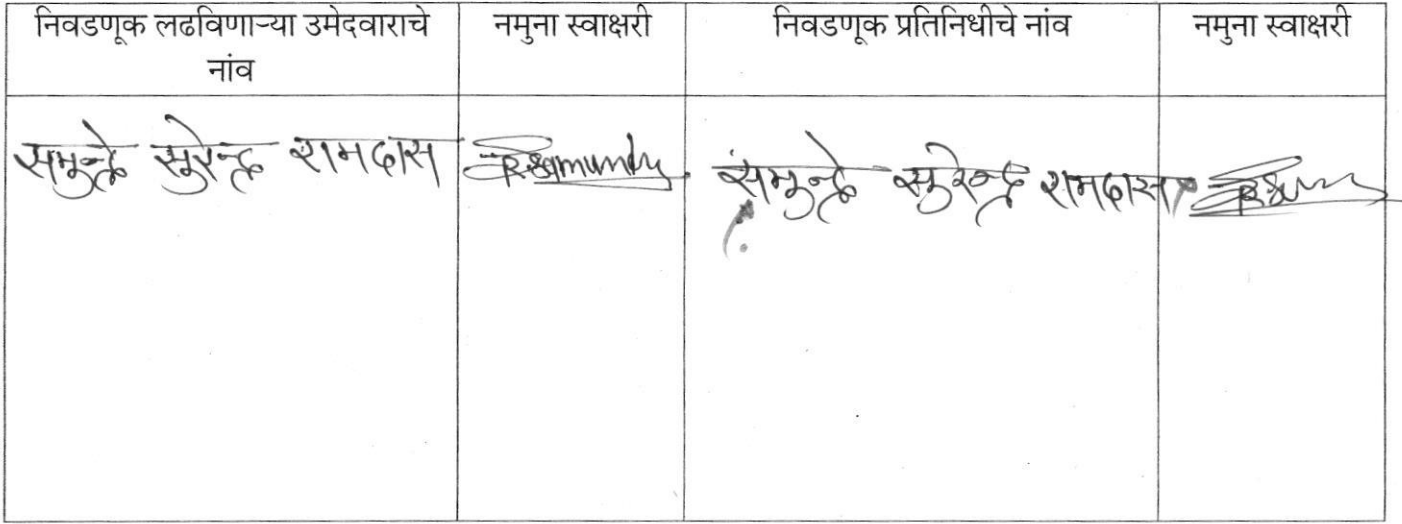 निवडणूक लढविणाऱ्या उमेदवाराचे
नांव
नमुना स्वाक्षरी
निवडणूक प्रतिनिधीचे नांव
नमुना स्वाक्षरी
समुन्द्रे सुरेन्द्र रामदास
समुन्द्रे सुरेन्द्र रामदास